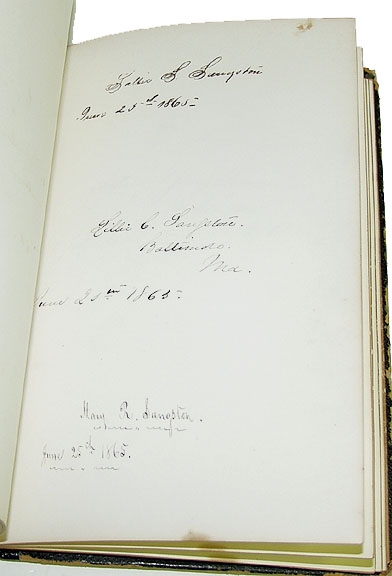 Sallie S Langston
June 25th 1865
Lillie C. Langston.
Baltimore.
Md.
June 25th 1865.
Mary R. Langston.
June 25th 1865.